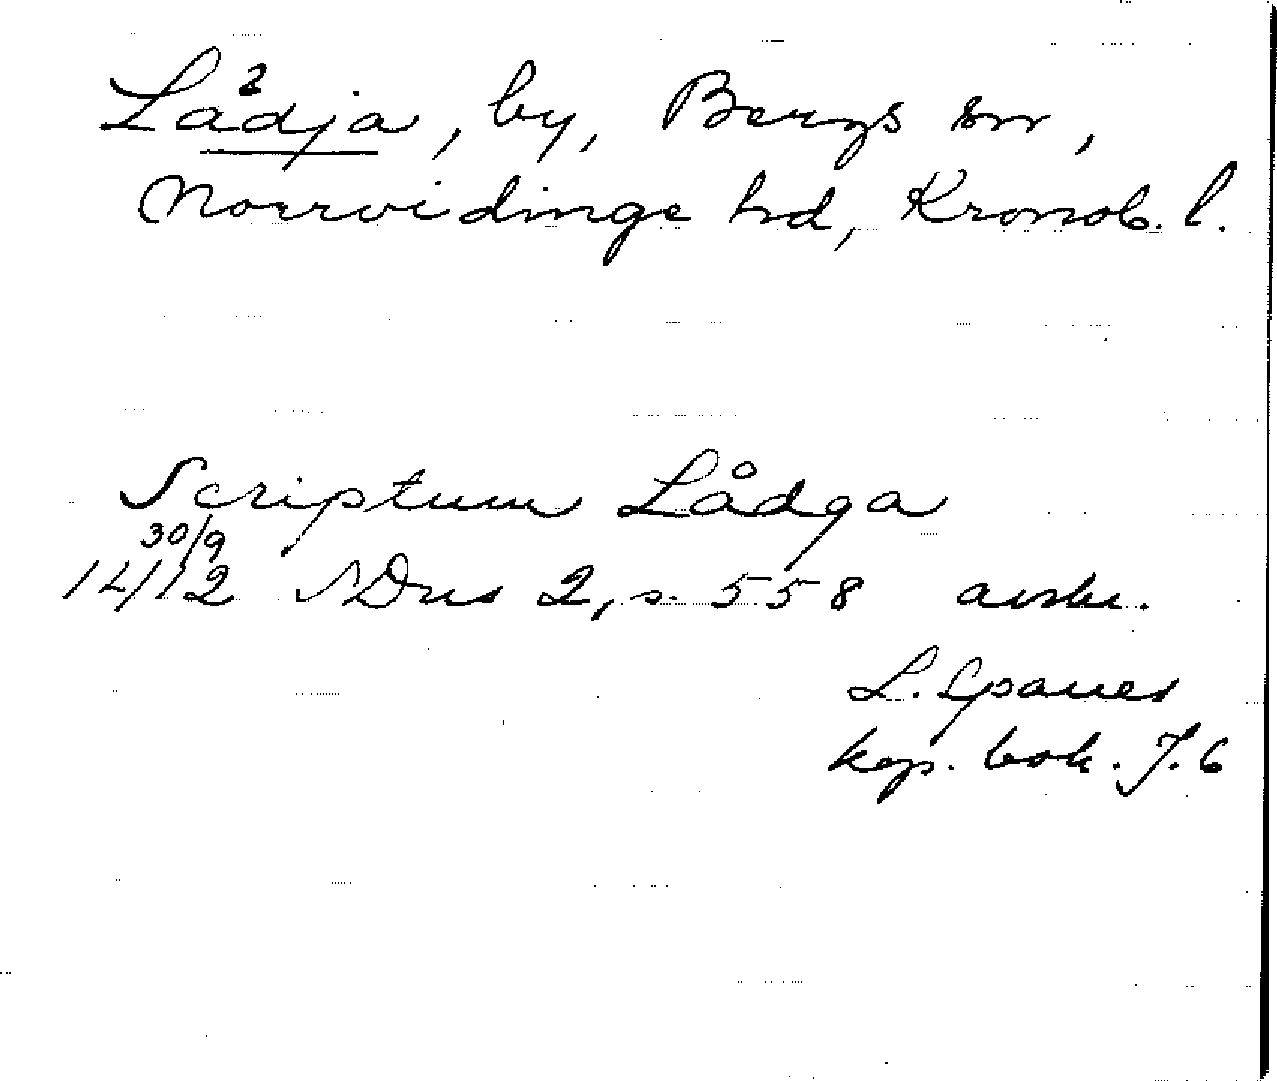 Lådja, by, Bergs sn,
Norrvidinge hd, Kronob. l.
Scriptum Lådga
30/9
1412 SDns 2, s. 558 avskr.
L. Sparres
kop. bok. f. 6